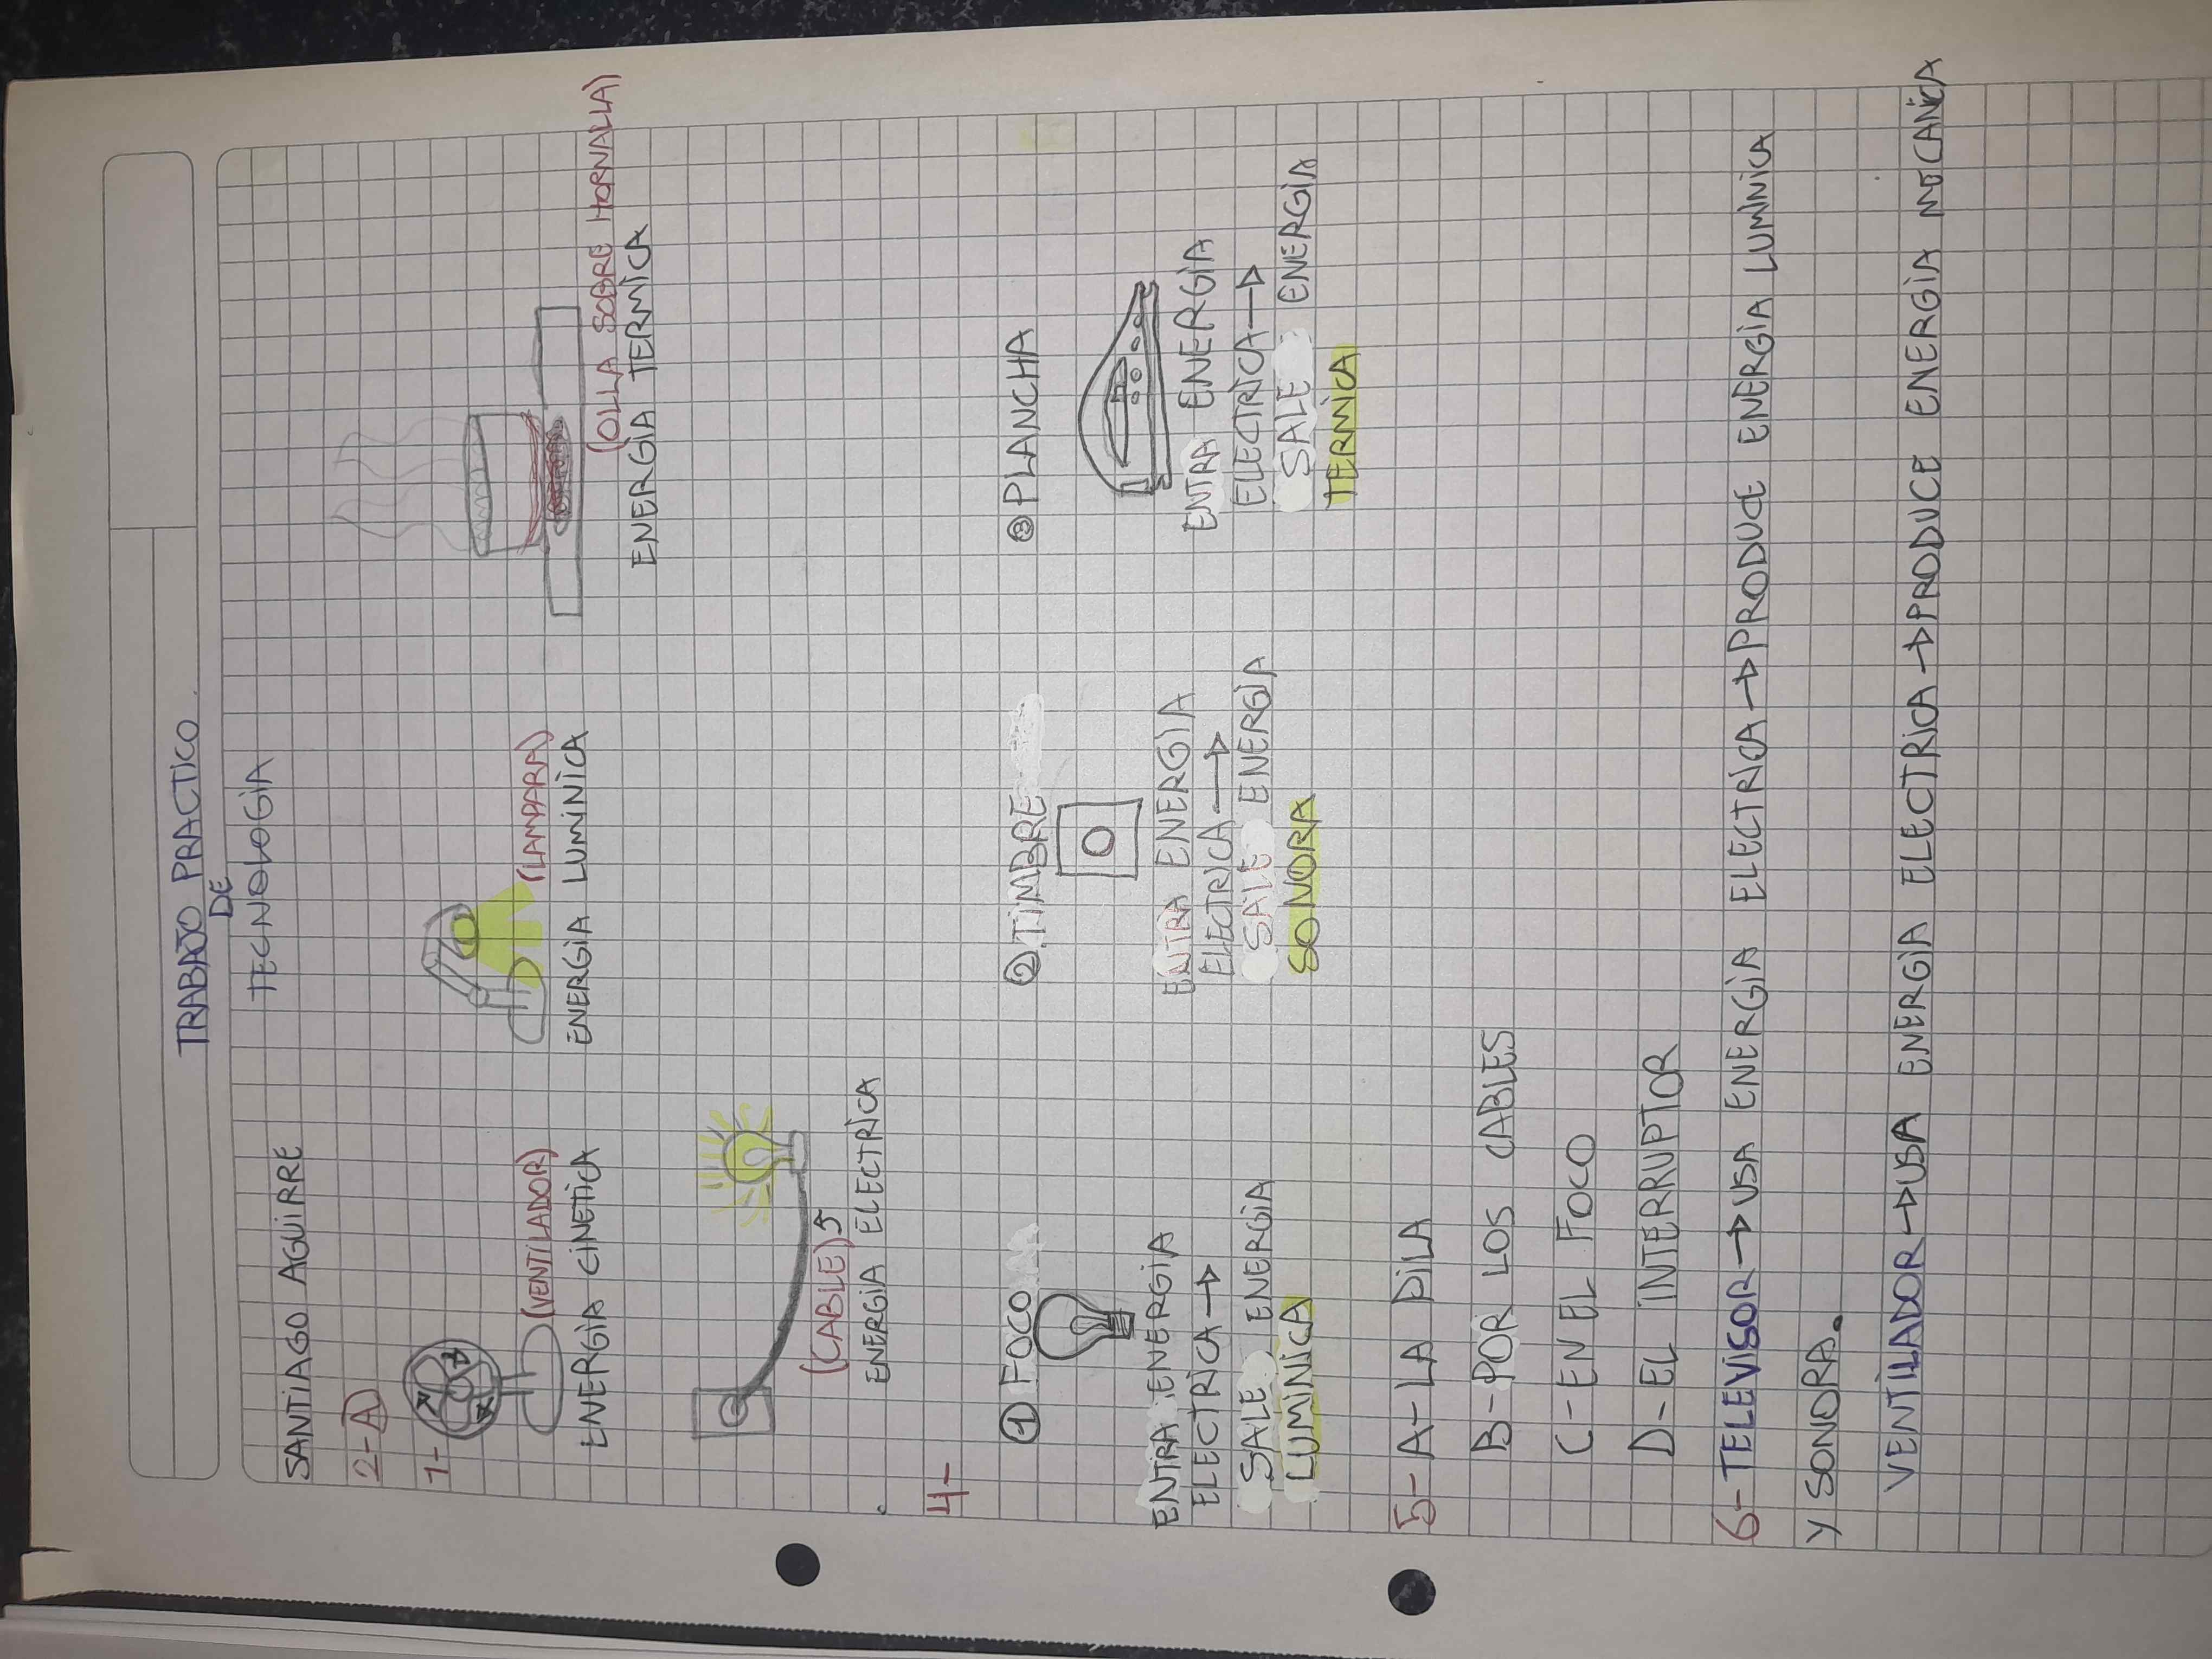 TRABAJO PRACTICO.
DE
TECNOLOGIA
SANTIAGO AGUIRRE
2-A
1-
(VENTILADOR)
ENERGIA CINETICA
(LAMPARA)
ENERGIA LUMINICA
(OLLA SOBRE HORNALLA)
ENERGIA TERMICA
(CABLE)
ENERGIA ELECTRICA
4-
1 FOCO
ENTRA ENERGIA
ELECTRICA →
SALE ENERGIA
LUMINICA
2 TIMBRE
ENTRA ENERGIA
ELECTRICA →
SALE ENERGIA
SONORA
3 PLANCHA
ENTRA ENERGIA
ELECTRICA →
SALE ENERGIA
TERMICA
5- A- LA PILA
B- POR LOS CABLES
C- EN EL FOCO
D- EL INTERRUPTOR
6- TELEVISOR → USA ENERGIA ELECTRICA → PRODUCE ENERGIA LUMINICA
Y SONORA.
VENTILADOR → USA ENERGIA ELECTRICA → PRODUCE ENERGIA